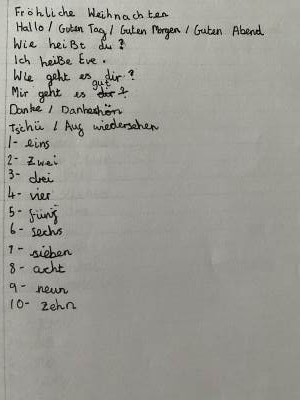 Fröhliche Weihnachten
Hallo / Guten Tag / Guten Morgen / Guten Abend
Wie heißt du?
Ich heiße Eve.
Wie geht es dir?
Mir geht es gut
Danke / Dankeschön
Tschü / Auf wiedersehen
1- eins
2- zwei
3- drei
4- vier
5- fünf
6- sechs
7- sieben
8- acht
9- neun
10- zehn